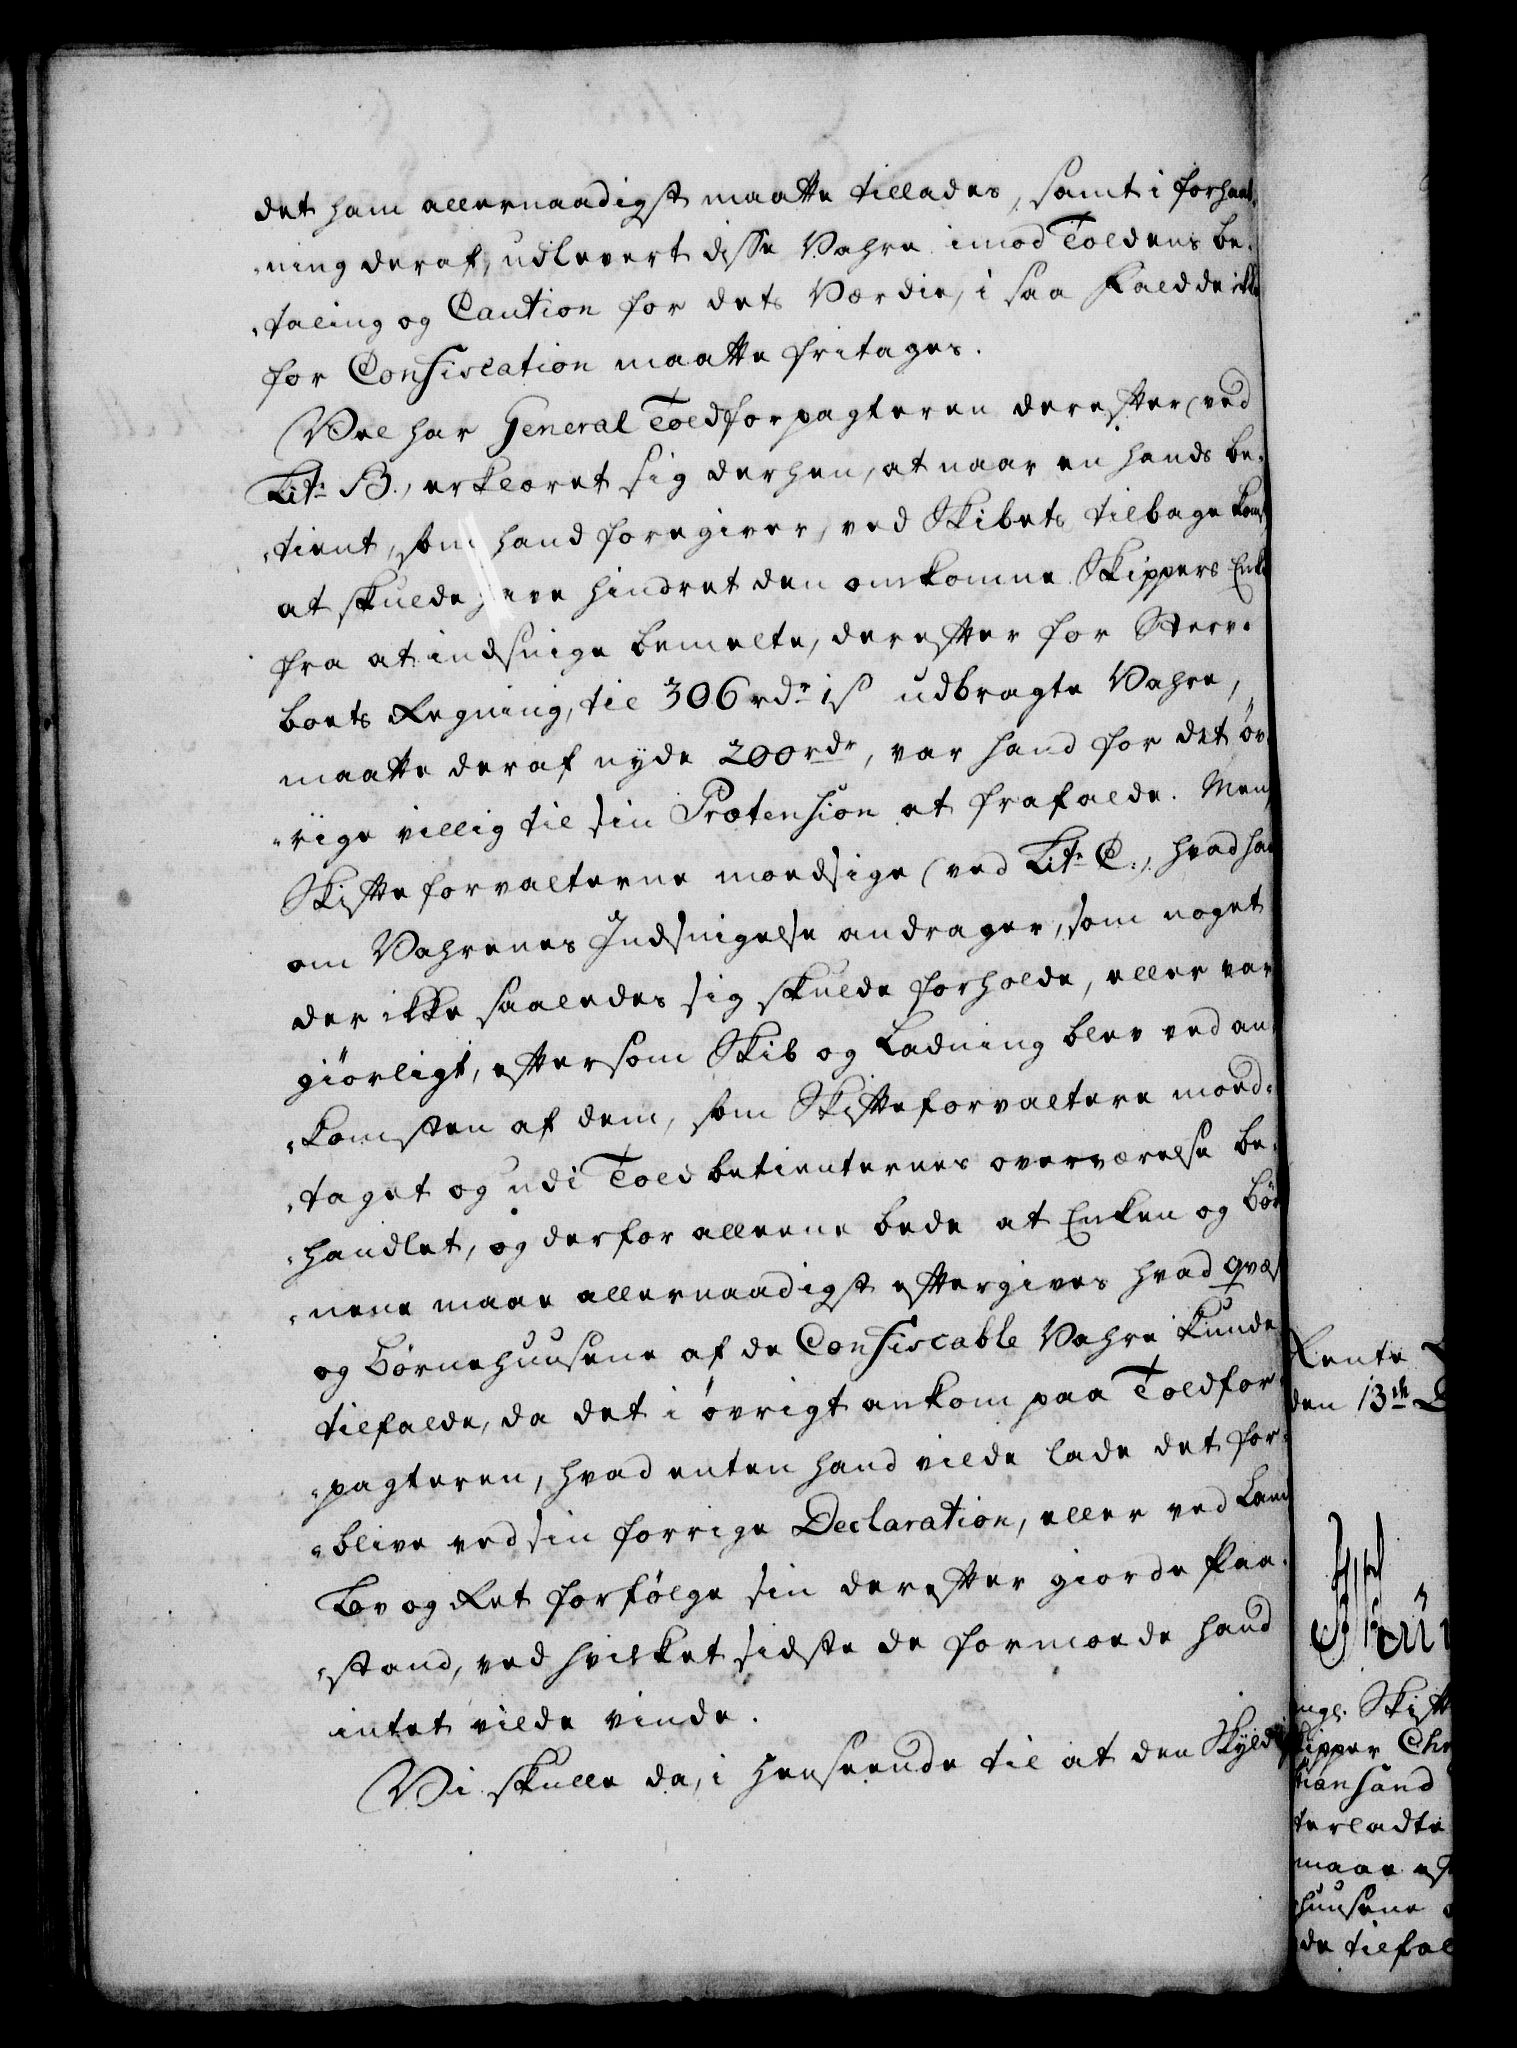 det ham allernaadigst maatte tillades, samt i forhaab-
-ning deraf, udlevert disse Vahre imod Toldens be-
-taling og Caution for dets Værdie, i saa Fald de ikke
for Confiscation maatte fritages.
Vel har General Toldforpagteren derefter (ved
Litr. B., erklæret sig derhen, at naar en hands be-
-tient, som hand foregiver, ved Skibets tilbage komst
at skulde have hindret den omkomne Skippers Enke
fra at indsnige bemelte, derefter for Sterv-
boets Regning, til 306 rdr. 1 ß udbragte Vahre,
maatte deraf nyde 200 rdr, var hand for det öv-
-rige villig til sin Prætension at frafalde. Men
Skifteforvalterne moedsige (ved Litr. C., hvad han
om Vahrenes Indsnigelse andrager, som noget
der ikke saaledes sig skulde forholde, eller var
giörligt, eftersom Skib og Ladning blev ved an-
-komsten af dem, som Skifteforvaltere moed-
-taget og udi Toldbetienternes overværelse be-
-handlet, og derfor alleene bede at Enken og Bör-
-nene maae allernaadigst eftergives hvad qvæst
og Børnehuusene af de Confiscable Vahre kunde
tilfalde, da det i övrigt ankom paa Toldfor-
-pagteren, hvad enten hand vilde lade det for-
-blive ved sin forrige Declaration, eller ved Land
Lov og Ret forfölge sin derefter giorde Paa-
-stand, ved hvilket sidste de formoede hand
intet vilde vinde.
Vi skulle da, i henseende til at den Skyldi
Rente
den 13de
angl. Skift
Skipper Chr
tiansand
terladte
maae eft
huusene
de tilfal